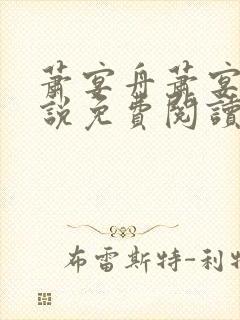 蕭宴舟蕭宴
說免費閱讀
布雷斯特-利特